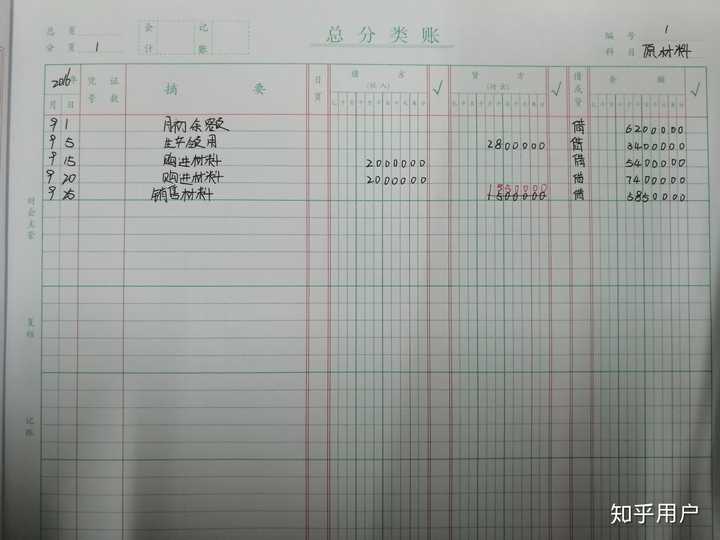 总分类账
总页
分页 1
会计
记账
编号 1
科目 原材料
2016年 凭证 摘要 日页 借方 √ 贷方 √ 借或贷 余额 √
月 日 号数
9 1 月初余额 借 6200000
9 5 生产领用 2800000 借 3400000
9 15 购进材料 2000000 借 5400000
9 20 购进材料 2000000 借 7400000
1550000
9 25 销售材料 1500000 借 5850000
财会主管
复核
记账
知乎用户